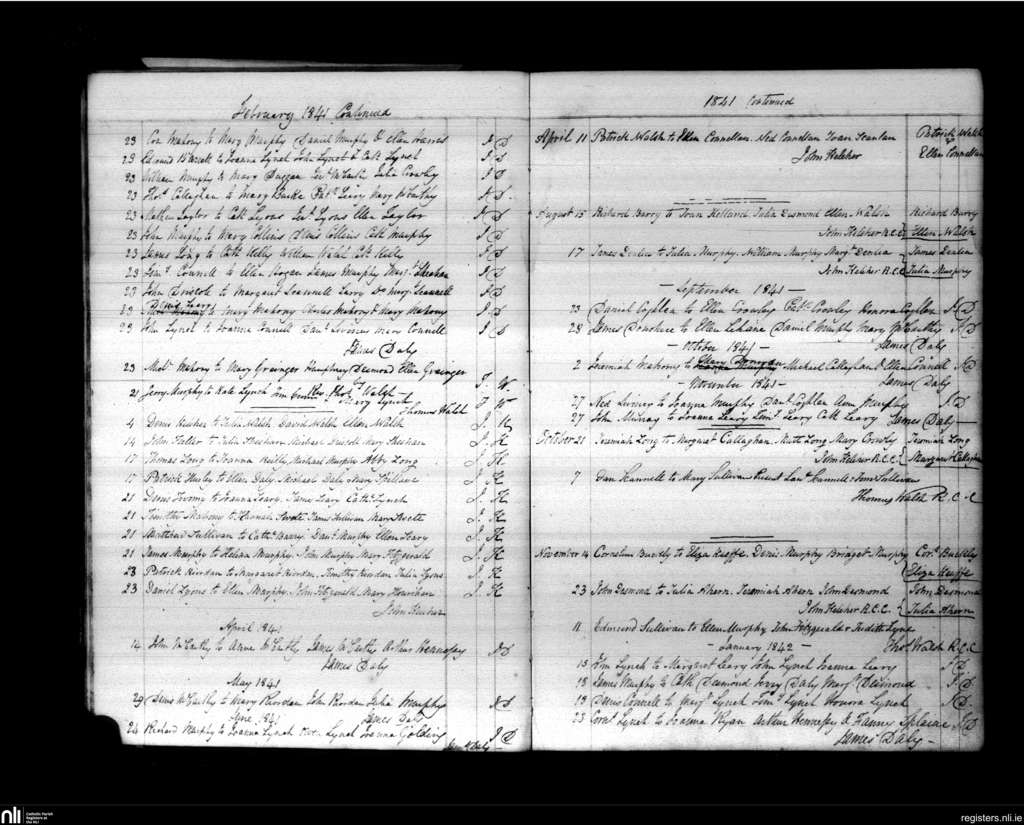 February 1841 Continued
23 Con Mahony to Mary Murphy Daniel Murphy & Ellen J D
23 Edmund to Joanna Lynch John Lynch & Cath Lynch J D
23 William Murphy to Mary Duggan Julia Crowley J D
23 Thos. Callaghan to Mary Burke Patk. Leary Mary McCarthy J D
23 Mathew Saylor to Cath Lyons Lyons Ellen Saylor J D
23 John Murphy to Mary Collins Denis Collins Cath Murphy J D
23 James Long to Cath Kelly William Walsh Cath J D
23 Timy. Connell to Ellen James Murphy Margt. Sheehan J D
23 John Driscole to Margaret Leary Do Margt. J D
Denis Leary
23 to Mary Mahony Charles Mahony & Mary Mahony J D
23 John Lynch to Joanna Connell Danl. Mary Connell J D
James Daly
23 Michl. Mahony to Mary Grainger Humphrey Desmond Ellen Grainger J. W
by
21 Jerry Murphy to Kate Lynch Revd. Walsh J W
Mary Lynch
Thomas Walsh
4 Denis to Julia Walsh David Walsh Ellen Walsh J. K
14 John to Julia Sheehan Michael Driscoll Mary Sheehan J. K
17 Thomas Long to Joanna Reilly Michael Murphy Abby Long J. K
17 Patrick Hurley to Ellen Daly Michael Daly Mary Spellane J. K
21 Denis to Joanna Leary. James Leary Cathe. Lynch J. K
21 Timothy Mahony to Hannah James Sullivan Mary J. K
21 Matthew Sullivan to Cathe. Danl. Murphy Ellen Leary J. K
21 James Murphy to Helena Murphy. John Murphy Mary Fitzgerald J. K
23 Patrick Riordan to Margaret Riordan. Timothy Riordan Julia Lyons J. K
23 Daniel Lyons to Ellen Murphy John Fitzgerald Mary Hourihan J. K
John
April 1841
14 John McCarthy to Anne McCarthy James McCarthy Arthur Hennessy J D
James Daly
May 1841
29 Denis McCarthy to Mary Riordan John Riordan Julia Murphy J D
June 1841 James Daly
24 Richard Murphy to Joanna Lynch Lynch Joanna Golding J D
James Daly
1841 Continued
April 11 Patrick Walsh to Ellen Connellan. Ned Connellan Joan Scanlan Patrick Walsh
John Keleher Ellen Connellan
August 15 Richard Barry to Joan Holland Julia Desmond Ellen Walsh Richard Barry
John Keleher R.C.C. Ellen Walsh
17 James to Julia Murphy. William Murphy Margt. James
John Keleher R.C.C. Julia Murphy
— September 1841 —
23 Daniel Coghlan to Ellen Crowley Patk. Crowley Honora Coghlan J D
28 James Donohue to Ellen Lehane Daniel Murphy Mary McCarthy J D
— October 1841 — James Daly
2 Jeremiah Mahony to Mary Donovan Michael Callaghan & Ellen J D
— November 1841 — James Daly
27 Ned to Joanna Murphy Danl. Coghlan Anne Murphy J. D
27 John Murray to Joanna Leary Timy. Leary Cath Leary James Daly
October 21 Jeremiah Long to Margaret Callaghan. Matt Long Mary Crowly Jeremiah Long
John Keleher R.C.C. Margaret Callaghan
7 Dan to Mary Sullivan Sullivan
Thomas Walsh R.C.C
November 14 Cornelius Buckley to Eliza Keeffe. Denis Murphy Bridget Murphy Cors. Buckley
Eliza Keeffe
23 John Desmond to Julia Ahern. Jeremiah Ahern John Desmond John Desmond
John Keleher R.C.C. Julia Ahern
11 Edmund Sullivan to Ellen Murphy John Fitzgerald & Judith Lyne
— January 1842 — Thos. Walsh R.C.C
15 Lynch to Margaret Leary John Lynch Joanna Leary J D
18 James Murphy to Cath Desmond Jerry Daly Margt. Desmond J D
18 Denis Connell to Margt. Lynch Timy. Lynch Honora Lynch J D
23 Cors. Lynch to Joanna Ryan Arthur Hennessy & Fanny Splaine J D
James Daly
nli
Catholic Parish
Registers at
the NLI
registers.nli.ie